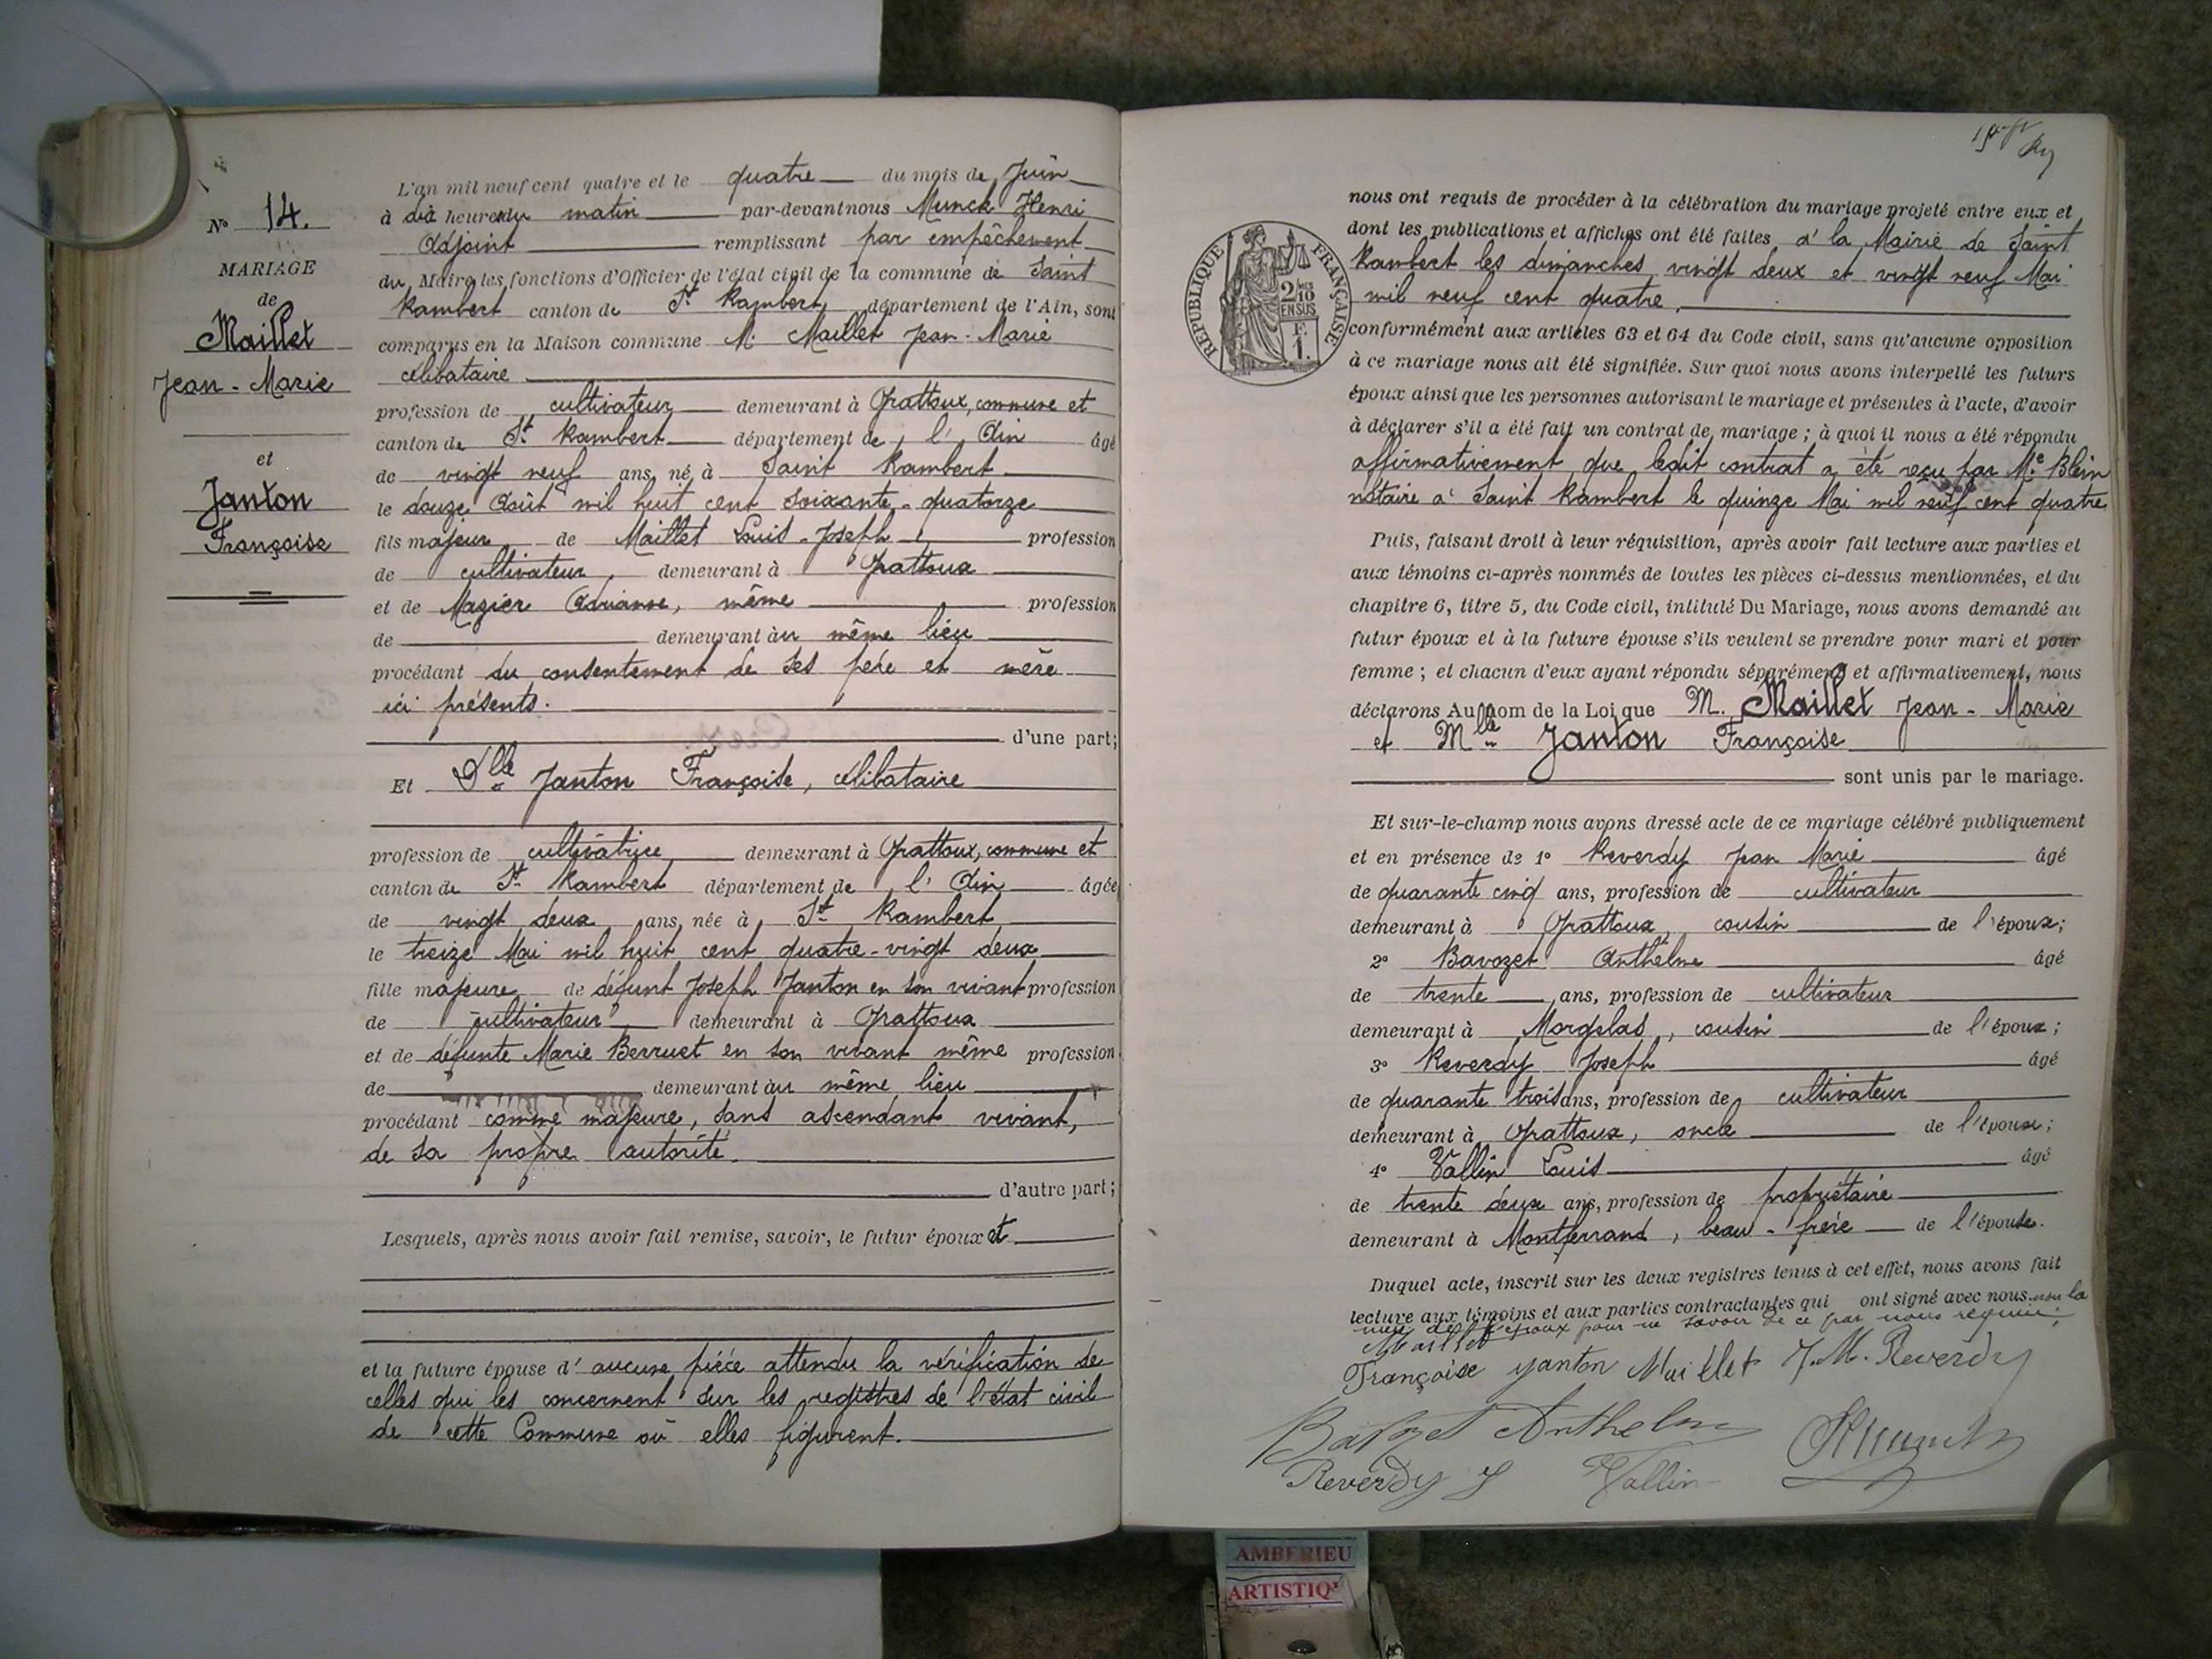 N° 14.
MARIAGE
de
Maillet
Jean-Marie
et
Janton
Françoise
L'an mil neuf cent quatre et le quatre du mois de Juin
à dix heures du matin par-devant nous Munck Henri
Adjoint remplissant par empêchement
du Maire les fonctions d'Officier de l'état civil de la commune de Saint
Rambert canton de St Rambert département de l'Ain, sont
comparus en la Maison commune M. Maillet Jean-Marie
célibataire
profession de cultivateur demeurant à Grattoux, commune et
canton de St Rambert département de l'Ain âgé
de vingt neuf ans, né à Saint Rambert
le douze Août mil huit cent soixante-quatorze
fils majeur de Maillet Louis-Joseph profession
de cultivateur, demeurant à Grattoux
et de Mazier , même profession
de demeurant au même lieu
procédant du consentement de ses père et mère
ici présents.
d'une part;
Et Dlle Janton Françoise, célibataire
profession de cultivatrice demeurant à Grattoux, commune et
canton de St Rambert département de l'Ain âgée
de vingt deux ans, née à St Rambert
le treize Mai mil huit cent quatre-vingt deux
fille majeure de défunt Joseph Janton en son vivant profession
de cultivateur demeurant à Grattoux
et de défunte Marie Berruet en son vivant même profession
de demeurant au même lieu
procédant comme majeure, sans ascendant vivant,
de sa propre autorité.
d'autre part;
Lesquels, après nous avoir fait remise, savoir, le futur époux et
et la future épouse d'aucune pièce attendu la vérification de
celles qui les concernent sur les registres de l'état civil
de cette Commune où elles figurent.
RÉPUBLIQUE FRANÇAISE
2/10
EN SUS
F.
1.
nous ont requis de procéder à la célébration du mariage projeté entre eux et
dont les publications et affiches ont été faites à la Mairie de Saint
Rambert les dimanches vingt deux et vingt neuf Mai
mil neuf cent quatre,
conformément aux articles 63 et 64 du Code civil, sans qu'aucune opposition
à ce mariage nous ait été signifiée. Sur quoi nous avons interpellé les futurs
époux ainsi que les personnes autorisant le mariage et présentes à l'acte, d'avoir
à déclarer s'il a été fait un contrat de mariage; à quoi il nous a été répondu
affirmativement que ledit contrat a été reçu par Me Blein
notaire à Saint Rambert le quinze Mai mil neuf cent quatre
Puis, faisant droit à leur réquisition, après avoir fait lecture aux parties et
aux témoins ci-après nommés de toutes les pièces ci-dessus mentionnées, et du
chapitre 6, titre 5, du Code civil, intitulé Du Mariage, nous avons demandé au
futur époux et à la future épouse s'ils veulent se prendre pour mari et pour
femme; et chacun d'eux ayant répondu séparément et affirmativement, nous
déclarons Au nom de la Loi que M. Maillet Jean-Marie
et Mlle Janton Françoise
sont unis par le mariage.
Et sur-le-champ nous avons dressé acte de ce mariage célébré publiquement
et en présence de 1° Reverdy Jean Marie âgé
de quarante cinq ans, profession de cultivateur
demeurant à Grattoux, cousin de l'époux;
2° Bavozet Anthelme âgé
de trente ans, profession de cultivateur
demeurant à Morgelas, cousin de l'époux;
3° Reverdy Joseph âgé
de quarante trois ans, profession de cultivateur
demeurant à Grattoux, oncle de l'épouse;
4° Vallin Louis âgé
de trente deux ans, profession de propriétaire
demeurant à Montferrand, beau-frère de l'épouse.
Duquel acte, inscrit sur les deux registres tenus à cet effet, nous avons fait
lecture aux témoins et aux parties contractantes qui ont signé avec nous non la
mère de l'époux pour ne savoir de ce par nous requise;
Maillet
Françoise Janton Maillet J.M. Reverdy
Bavozet Anthelme HMunck
Reverdy J Vallin
AMBERIEU
ARTISTIQ'